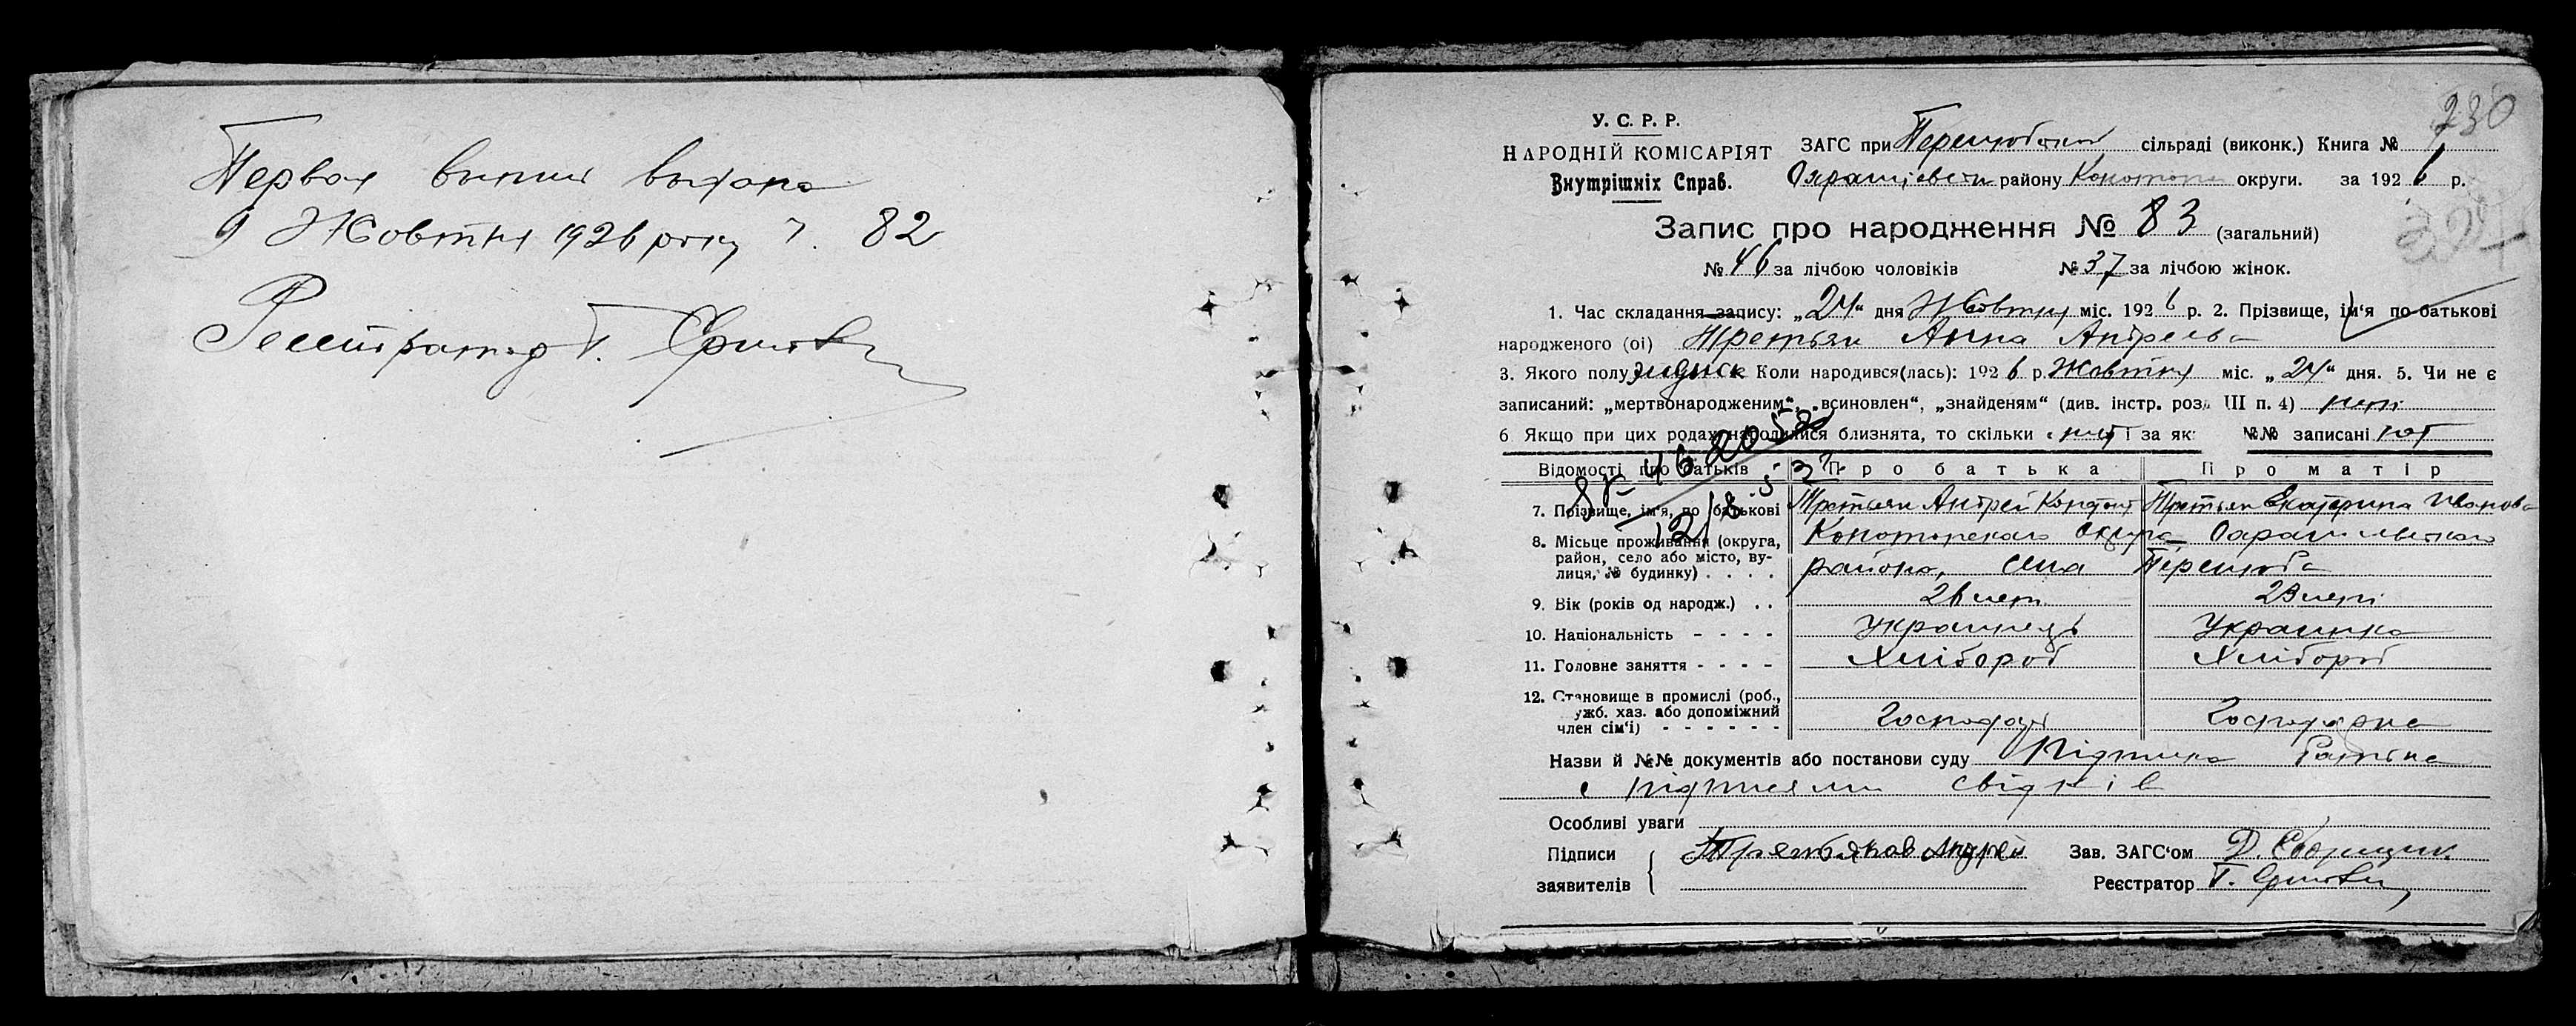 Первая выпись выдана
9 Жовтня 1926 року 7. 82
Реєстратор Г.
230
У. С. Р. Р.
НАРОДНІЙ КОМІСАРІЯТ
Внутрішніх Справ.
ЗАГС при сільраді (виконк.) Книга №
району Конотопск округи. за 1926 р.
Запис про народження № 83 (загальний)
№ 46 за лічбою чоловіків № 37 за лічбою жінок.
1. Час складання запису: „24“ дня Жовтня міс. 1926 р. 2. Прізвище, ім'я по батькові
народженого (ої) Третьяк Анна Андреева
3. Якого полу Коли народився(лась): 1926 р. Жовтня міс. „24“ дня. 5. Чи не є
записаний: „мертвонародженим“, „всиновлен“, „знайденям“ (див. інстр. розд. III п. 4) нет
6 Якщо при цих родах народилися близнята, то скільки нет і за як. №№ записані нет
Відомості про батьків Про батька Про матір
7. Прізвище, ім'я, по батькові Третьяк Андрей Кондрат Третьяк Екатерина Иванова
8. Місьце проживання (округа, район, село або місто, вулиця, № будинку) . . . .
Конотопского округа
района, села
9. Вік (років од народж.) . . 26 лет 23 лет
10. Національність - - - - Украинець Украинка
11. Головне заняття - - - - Хлібороб Хлібороб
12. Становище в промислі (роб.,
ужб. хаз. або допоміжний
член сім'ї) - - - - - - Господар Господарка
Назви й №№ документів або постанови суду Підписка
с підписями свідків
Особливі уваги
Підписи
заявителів
Третьяков Андрей
Зав. ЗАГС'ом Д.
Реєстратор Г.